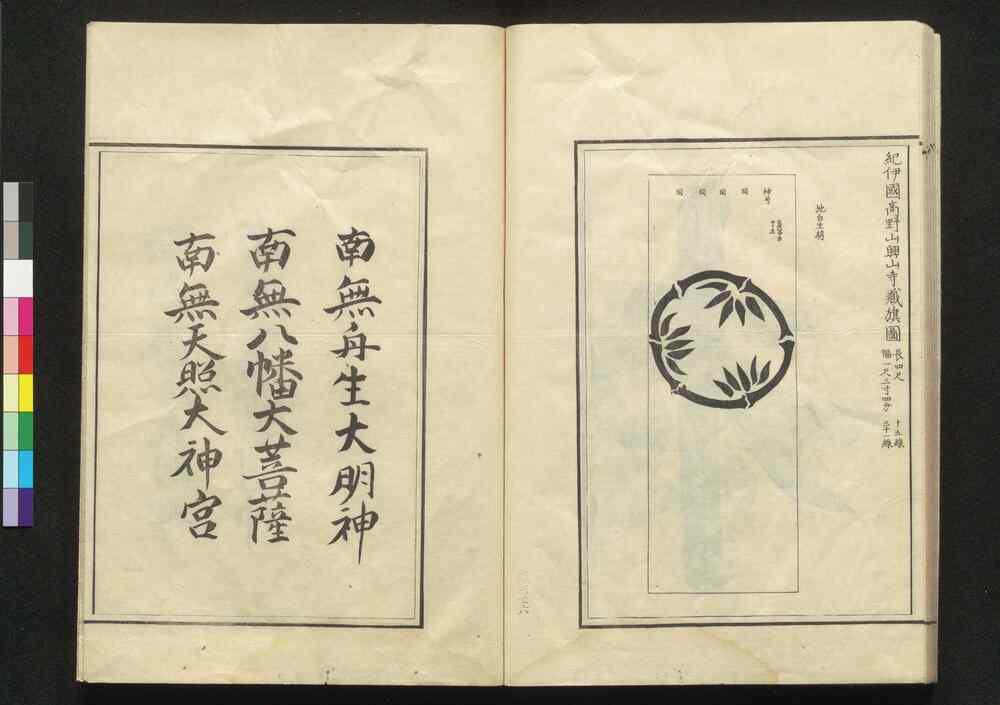 紀伊國高野山興山寺蔵旗圖
長四尺
幅一尺三寸四分
十五線
三十一線
地白生絹
神号
南無舟生大明神
南無八幡大菩薩
南無天照大神宮